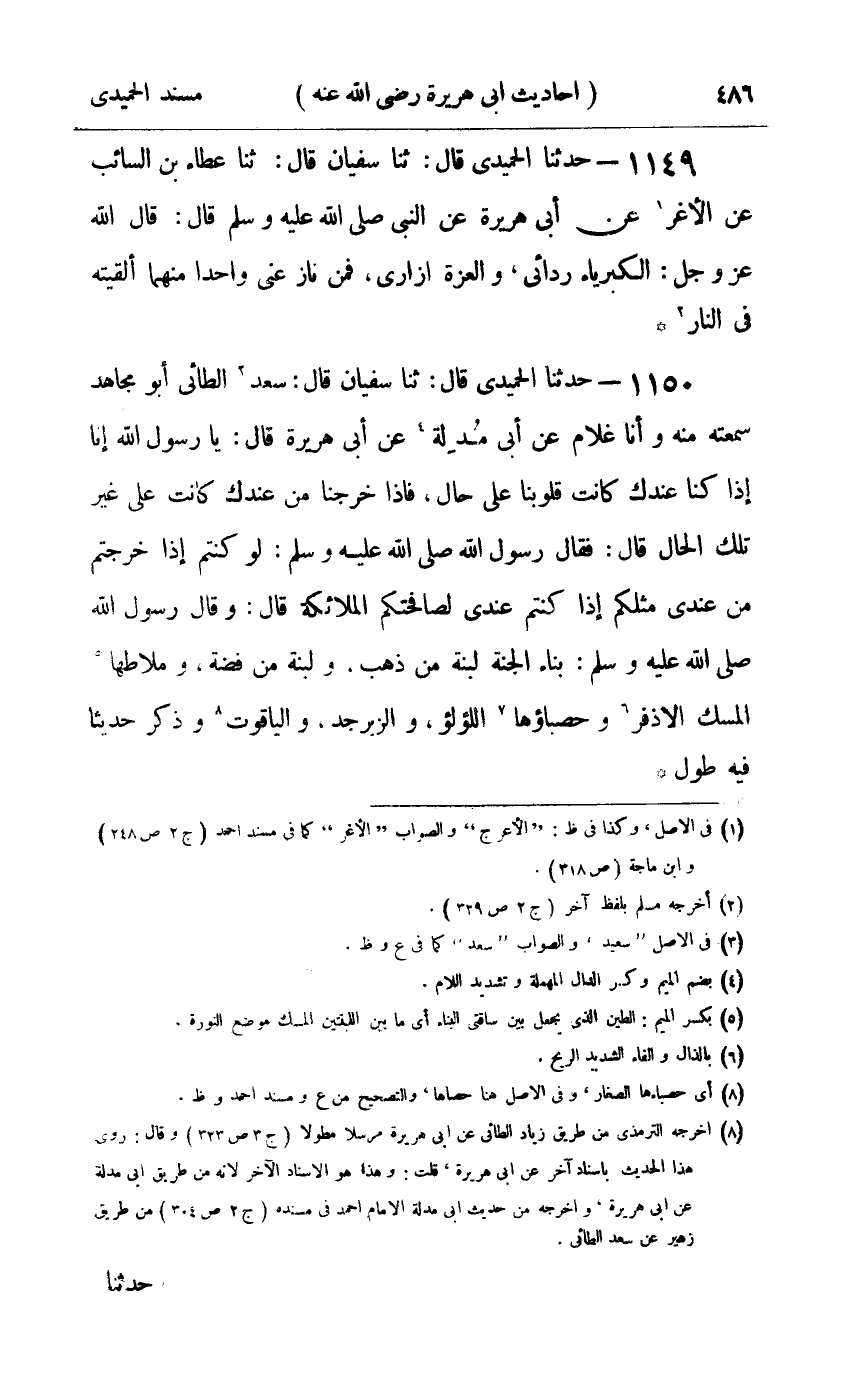 ٤٨٦ ( احاديث ابى هريرة رضى الله عنه ) مسند الحميدى
١١٤٩ – حدثنا الحميدى قال : ثنا سفيان قال : ثنا عطاء بن السائب
عن الأغر١ عن أبى هريرة عن النبى صلى الله عليه و سلم قال : قال الله
عز و جل : الكبرياء ردائى ، و العزة ازارى ، فمن ناز عنى واحدا منهما ألقيته
فى النار٢ *
١١٥٠ – حدثنا الحميدى قال : ثنا سفيان قال : سعد٣ الطائى أبو مجاهد
سمعته منه و أنا غلام عن أبى مُدِلة٤ عن أبى هريرة قال : يا رسول الله إنا
إذا كنا عندك كانت قلوبنا على حال ، فاذا خرجنا من عندك كانت على غير
تلك الحال قال : فقال رسول الله صلى الله عليه و سلم : لو كنتم إذا خرجتم
من عندى مثلكم إذا كنتم عندى لصافحتكم الملائكة قال : و قال رسول الله
صلى الله عليه و سلم : بناء الجنة لبنة من ذهب . و لبنة من فضة ، و ملاطها٥
المسك الاذفر٦ و حصباؤها٧ اللؤلؤ ، و الزبرجد ، و الياقوت٨ و ذكر حديثا
فيه طول *
(١) فى الاصل ، و كذا فى ظ : ”الأعرج“ و الصواب ”الأغر“ كما فى مسند احمد ( ج ٢ ص ٢٤٨ )
و ابن ماجة ( ص ٣١٨ ) .
(٢) أخرجه مسلم بلفظ آخر ( ج ٢ ص ٣٢٩ ) .
(٣) فى الاصل ”سعيد ، و الصواب ”سعد“ كما فى ع و ظ .
(٤) بضم الميم و كسر الدال المهملة و تشديد اللام .
(٥) بكسر الميم : الطين الذى يجعل بين ساقتى البناء أى ما بين اللبنتين المسك موضع النورة .
(٦) بالذال و الفاء الشديد الريح .
(٨) أى حصباءها الصغار ، و فى الاصل هنا حصاها ، والتصحيح من ع و مسند احمد و ظ .
(٨) اخرجه الترمذى من طريق زياد الطائى عن ابى هريرة مرسلا مطولا ( ج ٣ ص ٣٢٣ ) و قال : روى
هذا الحديث باسناد آخر عن ابى هريرة ، قلت : و هذا هو الاسناد الآخر لانه من طريق ابى مدلة
عن ابى هريرة ، و اخرجه من حديث ابى مدلة الامام احمد فى مسنده ( ج ٢ ص ٣٠٤ ) من طريق
زهير عن سعد الطائى .
حدثنا